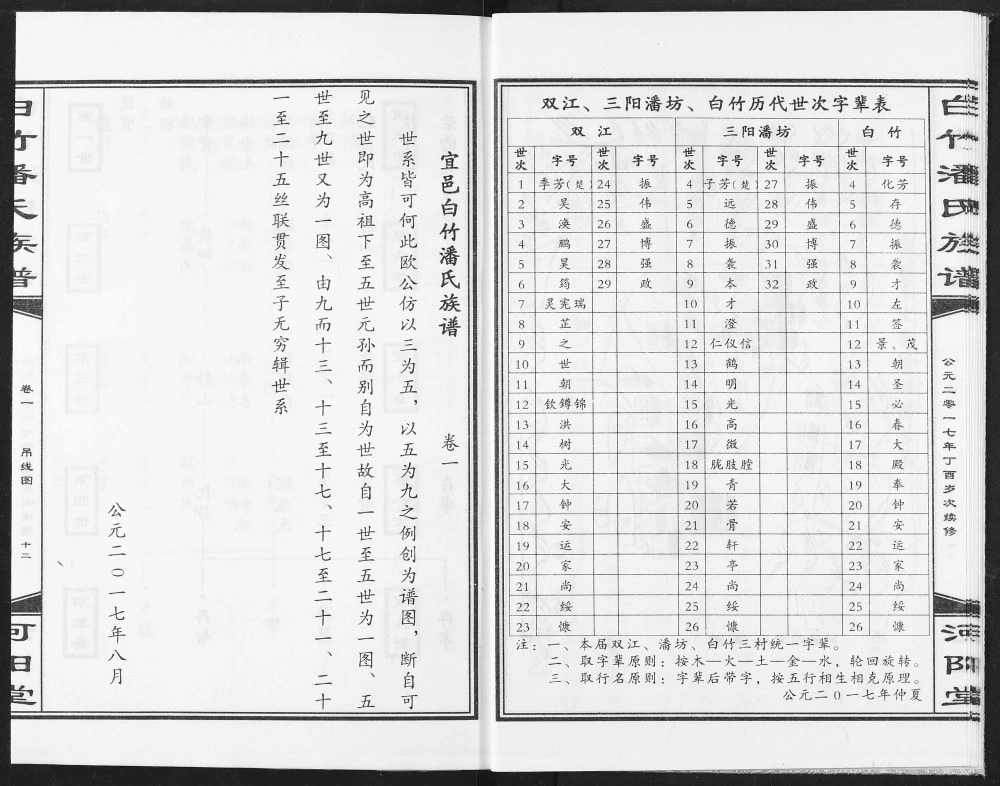 白竹潘氏族谱
公元二零一七年丁酉岁次续修
河阳堂
双江、三阳潘坊、白竹历代世次字辈表
双江 三阳潘坊 白竹
世次 字号 世次 字号 世次 字号 世次 字号 世次 字号
1 季芳(楚) 24 振 4 子芳(楚) 27 振 4 化芳
2 吴 25 伟 5 远 28 伟 5 存
3 涣 26 盛 6 德 29 盛 6 德
4 鹏 27 博 7 振 30 博 7 振
5 昊 28 强 8 袭 31 强 8 袭
6 筠 29 政 9 本 32 政 9 才
7 灵宪瑞 10 才 10 左
8 芷 11 澄 11 签
9 之 12 仁仪信 12 景、茂
10 世 13 鹤 13 朝
11 朝 14 明 14 圣
12 钦鐏锦 15 光 15 必
13 洪 16 高 16 春
14 树 17 微 17 大
15 光 18 胧肢膛 18 殿
16 大 19 青 19 奉
17 钟 20 若 20 钟
18 安 21 骨 21 安
19 运 22 轩 22 运
20 家 23 亭 23 家
21 尚 24 尚 24 尚
22 绥 25 绥 25 绥
23 慷 26 慷 26 慷
注：一、本届双江、潘坊、白竹三村统一字辈。
二、取字辈原则：按木—火—土—金—水，轮回旋转。
三、取行名原则：字辈后带字，按五行相生相克原理。
公元二0一七年仲夏
宜邑白竹潘氏族谱 卷一
世系皆可何此欧公仿以三为五，以五为九之例创为谱图，断自可
见之世即为高祖下至五世元孙而别自为世故自一世至五世为一图、五
世至九世又为一图、由九而十三、十三至十七、十七至二十一、二十
一至二十五丝联贯发至子无穷辑世系
公元二0一七年八月
白竹潘氏族谱
卷一 吊线图 十二
河阳堂